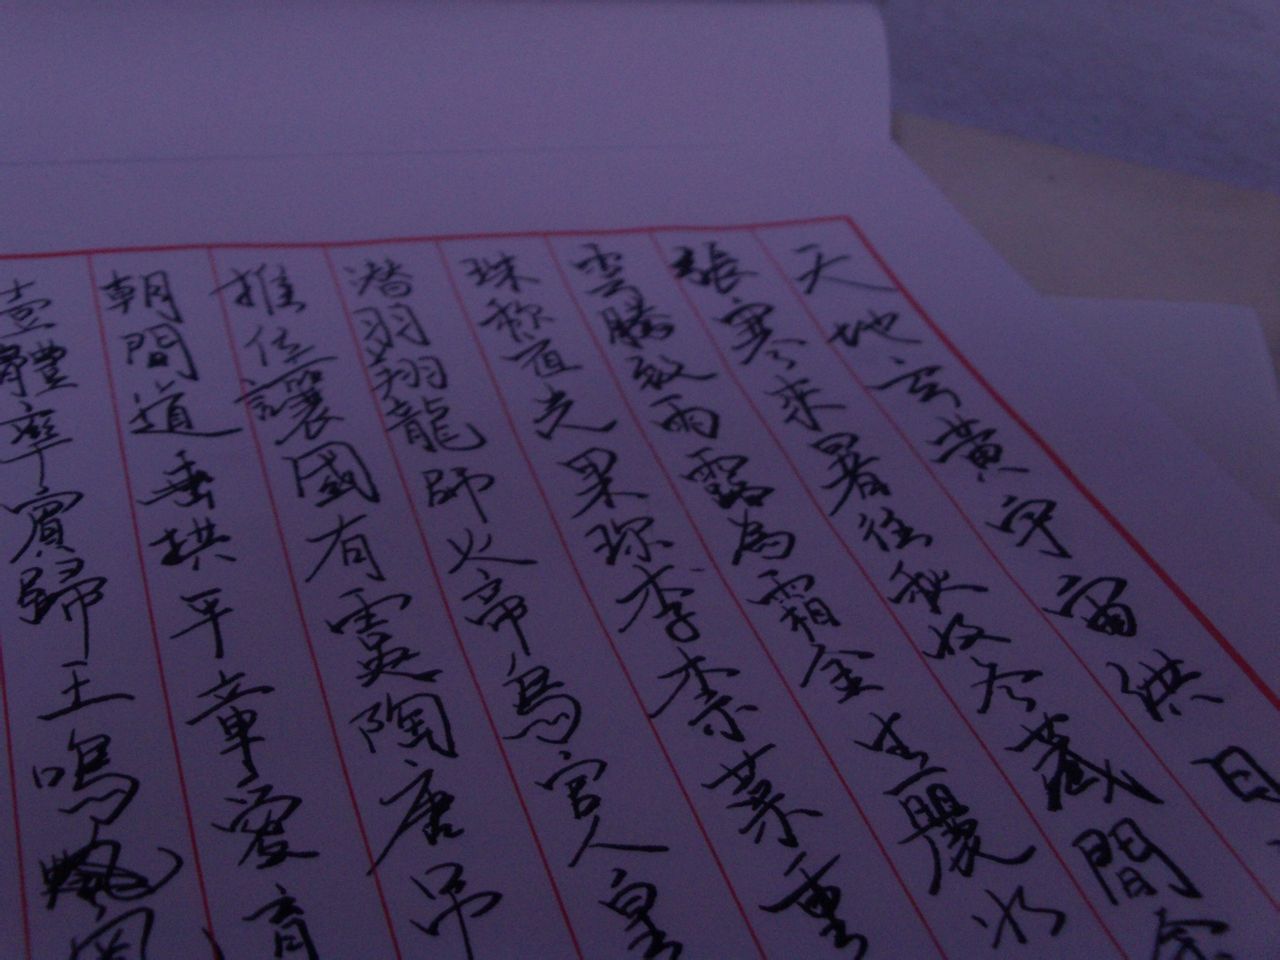 天地玄黄宇宙洪日
張寒来暑往秋收冬藏閏余
雲騰致雨露為霜金生麗水
珠称夜光果珍李柰菜重
潜羽翔龍師火帝鳥官人皇
推位讓國有虞陶唐吊
朝問道垂拱平章愛育
壹體率賓歸王鳴鳳